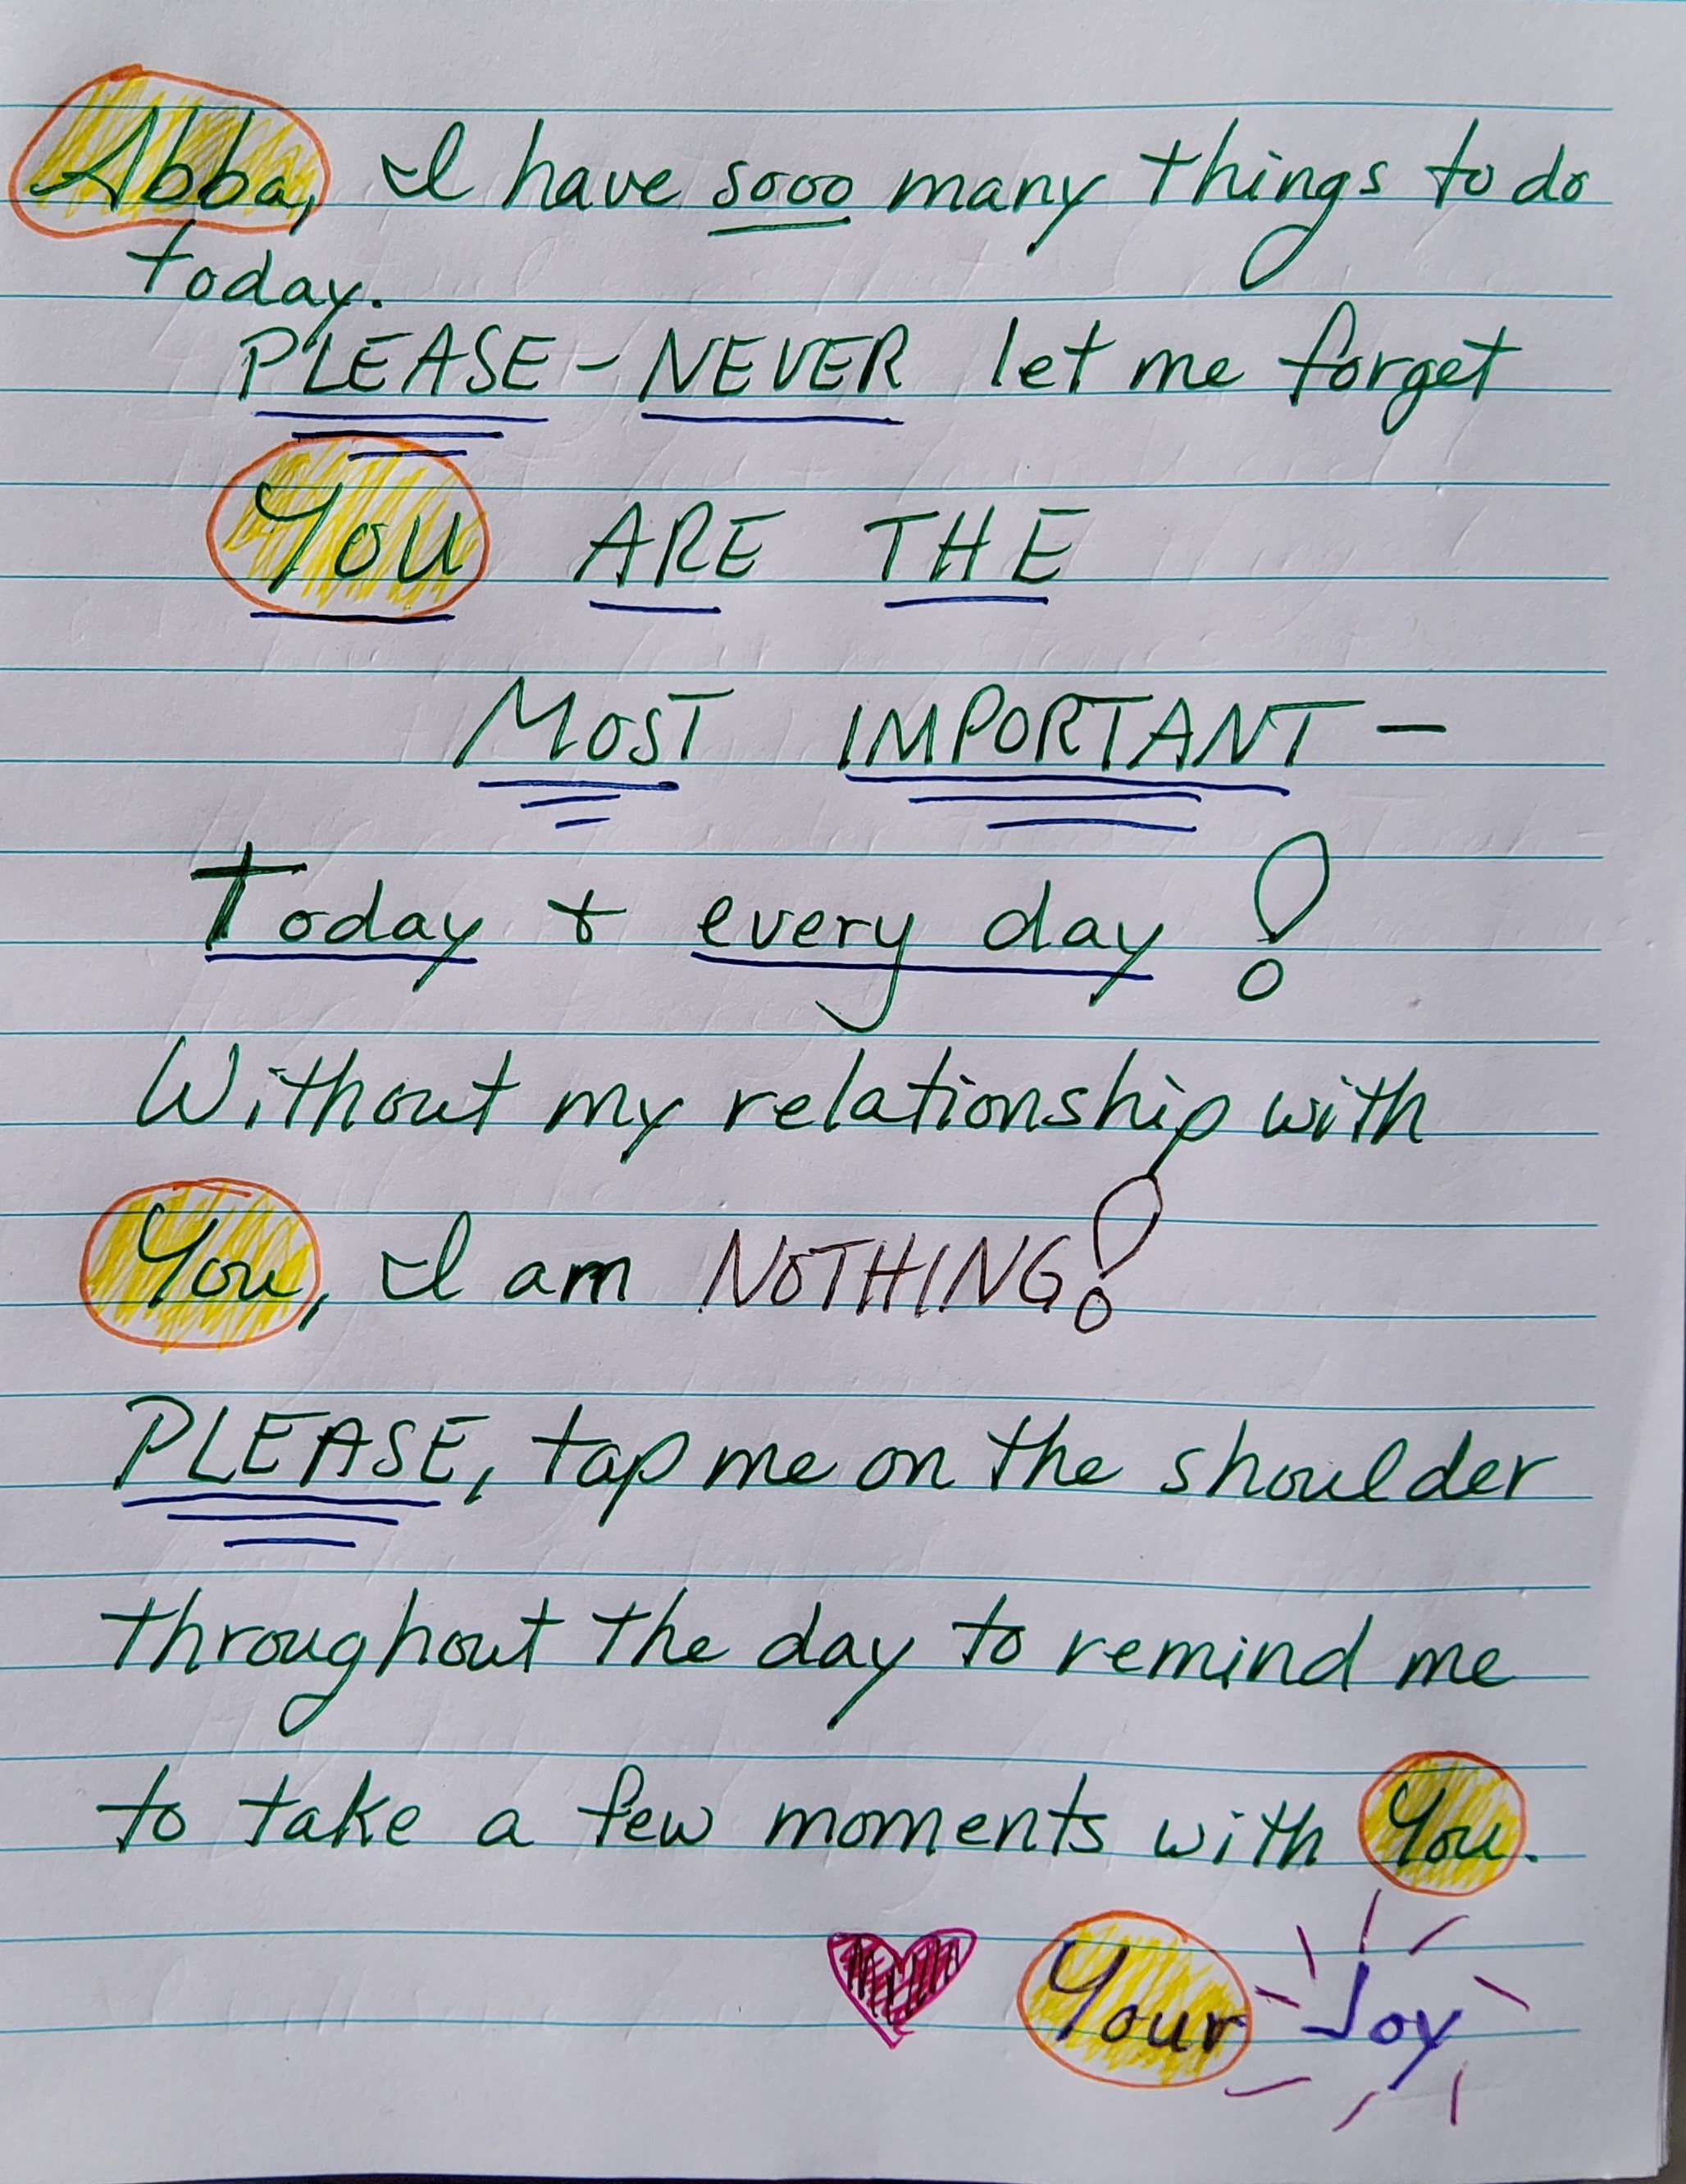 Abba, I have sooo many things to do
today.
PLEASE - NEVER let me forget
You ARE THE
MOST IMPORTANT -
Today + every day!
Without my relationship with
You, I am NOTHING!
PLEASE, tap me on the shoulder
throughout the day to remind me
to take a few moments with You.
Your Joy